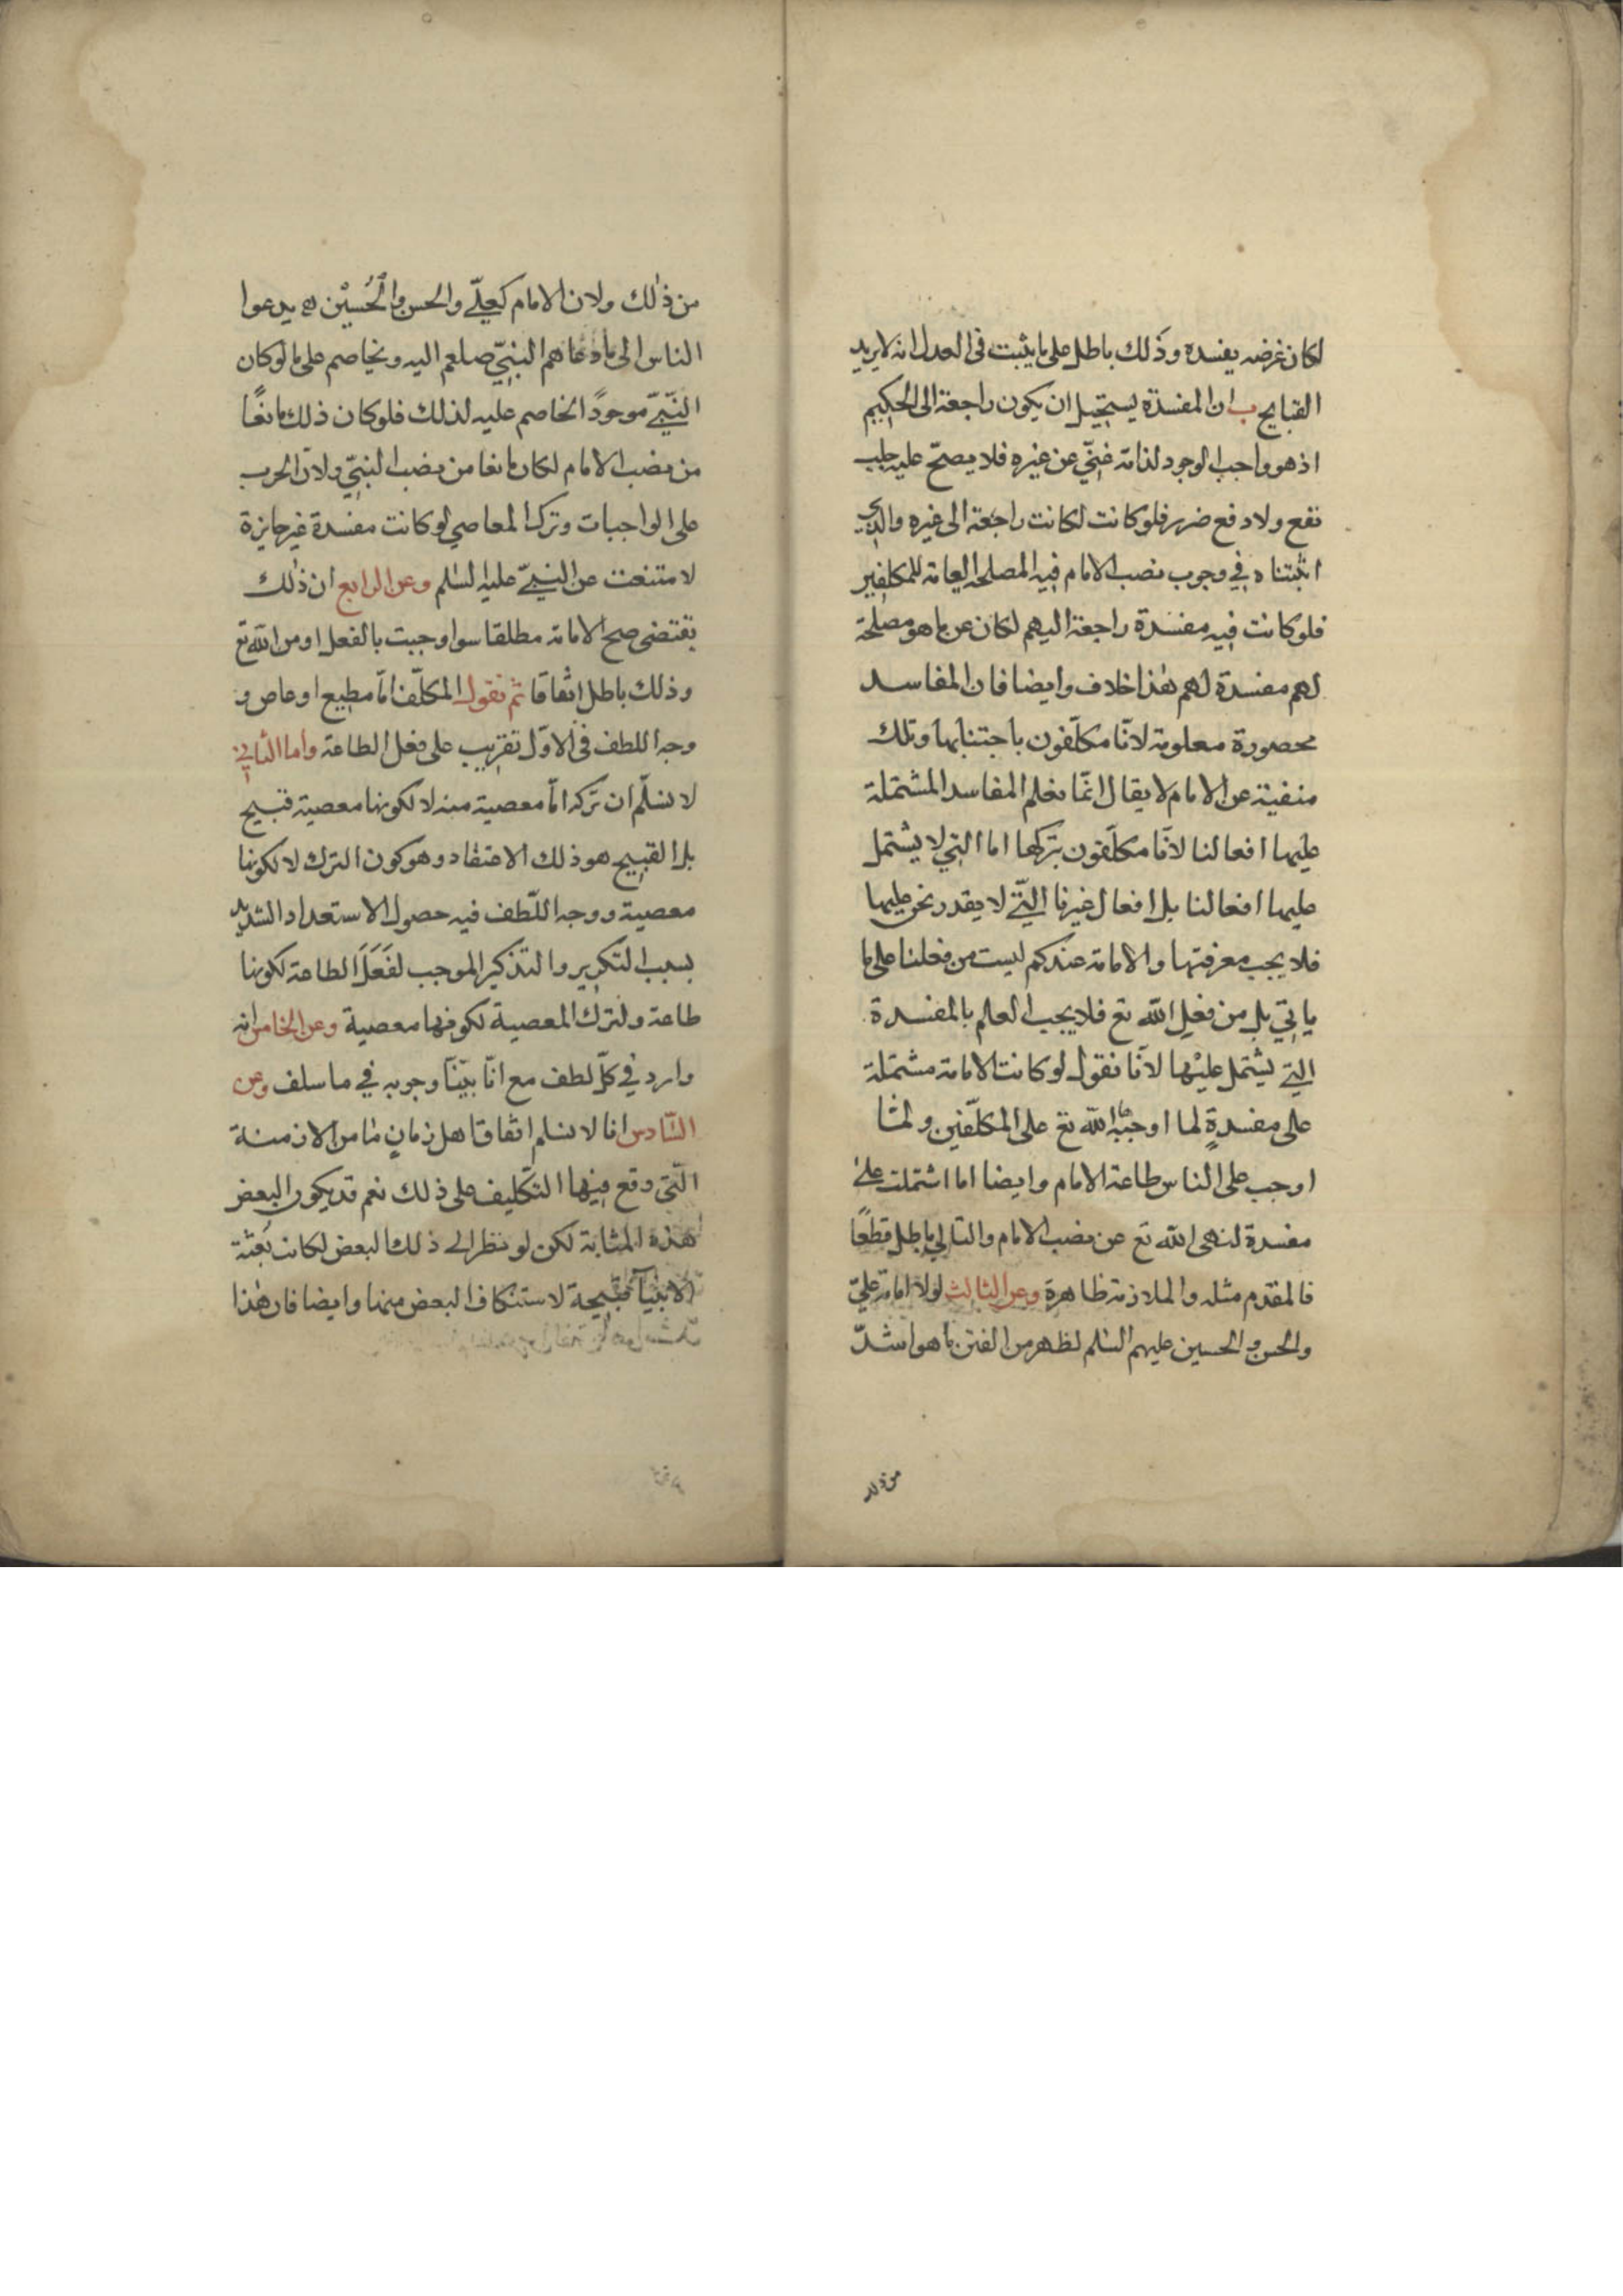 لكان غرضه يفسده وذلك باطل على ما يثبت فى العدل انه لا يريد
القبايح ب ان المفسدة يستحيل ان يكون راجعة الى الحكيم
اذ هو واجب الوجود لذاته غنىّ عن غيره فلا يصحّ عليه جلب
نفع ولا دفع ضرر فلو كانت لكانت راجعة الى غيره والذى
اثبتناه في وجوب نصب الامام فيه المصلحة العامة للمكلفين
فلو كانت فيه مفسدة راجعة اليهم لكان عن ما هو مصلحة
لهم مفسدة لهم هذا خلاف وايضا فان المفاسد
محصورة معلومة لانّا مكلّفون باجتنابها وتلك
منفية عن الامام لا يقال انّما نعلم المفاسد المشتملة
عليها افعالنا لانّا مكلّفون بتركها اما التي لا يشتمل
عليها افعالنا بل افعال غيرنا التّي لا يقدر نحن عليها
فلا يجب معرفتها والامامة عندكم ليست من فعلنا على ما
ياتي بل من فعل الله تع فلا يجب العلم بالمفسدة
التي يشتمل عليها لانّا نقول لو كانت الامامة مشتملة
على مفسدةٍ لما اوجبها الله تع على المكلّفين ولما
اوجب على الناس طاعة الامام وايضا اما اشتملت على
مفسدة لنهى الله تع عن نصب الامام والتالي باطل قطعًا
فالمقدم مثله والملازمة ظاهرة وعن الثالث لولا امامة عليّ
والحسن والحسين عليهم السلم لظهر من الفتن ما هو اشدّ
من ذلك
من ذلك ولان الامام كعليّ والحسن والحُسيْن ع يدعوا
الناس الى ما دعاهم النبيّ صلعم اليه ويخاصم على ما لو كان
النّبيّ موجودًا لخاصم عليه لذلك فلو كان ذلك مانعًا
من نصب الامام لكان مانعا من نصب النبيّ ولانّ الحرب
على الواجبات وترك المعاصي لو كانت مفسدة غير جايزة
لامتنعت عن النبيّ عليه السلم وعن الرابع ان ذلك
يقتضى صح الامامة مطلقا سوا وجبت بالفعل او من الله تع
وذلك باطل اتفاقا ثم نقول المكلّف امّا مطيع او عاص و
وجه اللطف فى الاوّل تقريب على فعل الطاعة واما الثاني
لا نسلّم ان تركه امّا معصية منه لا لكونها معصية قبيح
بل القبيح هو ذلك الاعتقاد وهو كون الترك لا لكونها
معصية ووجه اللّطف فيه حصول الاستعداد الشديد
بسبب التكرير والتذكير الموجب لفَعَلَ الطاعة لكونها
طاعة ولترك المعصية لكونها معصية وعن الخامس انه
وارد في كلّ لطف مع انّا بيّنّا وجوبه في ما سلف وعن
السّادس انا لا نسلم اتفاق اهل زمانٍ ما من الازمنة
التّي وقع فيها التكليف على ذلك نعم قد يكون البعض
بهذه المثابة لكن لو نظر الى ذلك البعض لكانت بعثة
الانبيآ قبيحة لاستنكاف البعض منها وايضا فان هذا